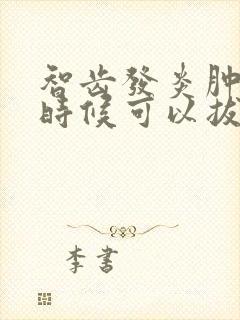 智齿發炎肿
時候可以拔
李書